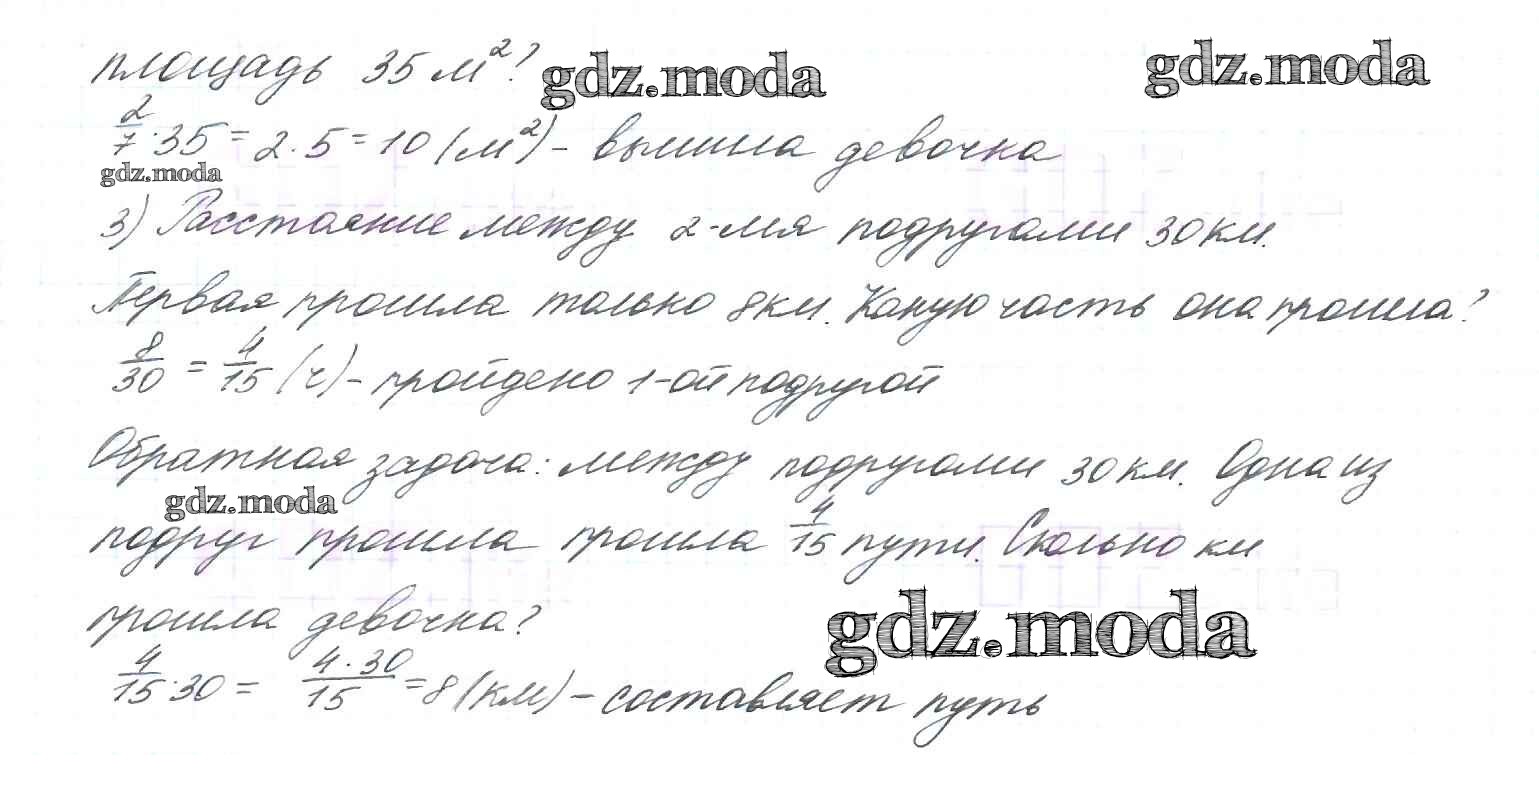 площадь 35 м²? gdz.moda gdz.moda
2/7 · 35 = 2 · 5 = 10 (м²) - вымыла девочка
gdz.moda
3) Расстояние между 2-мя подругами 30 км.
Первая прошла только 8 км. Какую часть она прошла?
8/30 = 4/15 (ч) - пройдено 1-ой подругой
Обратная задача: между подругами 30 км. Одна из
gdz.moda
подруг прошла прошла 4/15 пути. Сколько км
прошла девочка? gdz.moda
4/15 · 30 = 4 · 30/15 = 8 (км) - составляет путь